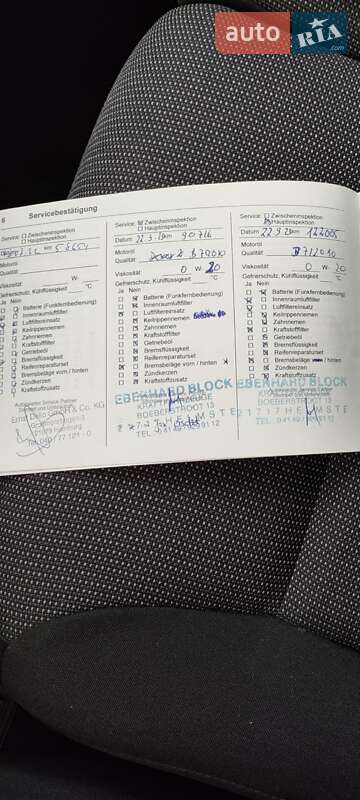 auto RIA.com
6 Servicebestätigung
Service: Zwischeninspektion
Hauptinspektion
km
Motoröl
Qualität
Viskosität W-
Gefrierschutz, Kühlflüssigkeit °C
Ja Nein
Batterie (Funkfernbedienung)
Innenraumluftfilter
Luftfiltereinsatz
Keilrippenriemen
Zahnriemen
Kraftstofffilter
Getriebeöl
Bremsflüssigkeit
Reifenreparaturset
Bremsbeläge vorn / hinten
Zündkerzen
Kraftstoffzusatz
Autorisierter Service Partner
Ernst Dello GmbH & Co. KG
21079 Hamburg
Service: Zwischeninspektion
Hauptinspektion
Datum km 90716
Motoröl
Qualität
Viskosität 0 W- 20
Gefrierschutz, Kühlflüssigkeit °C
Ja Nein
Batterie (Funkfernbedienung)
Innenraumluftfilter
Luftfiltereinsatz
Keilrippenriemen
Zahnriemen
Kraftstofffilter
Getriebeöl
Bremsflüssigkeit
Reifenreparaturset
Bremsbeläge vorn / hinten
Zündkerzen
Kraftstoffzusatz
EBERHARD BLOCK
KRAFTFAHRZEUGE
BOEBERSTROOT 13
Service: Zwischeninspektion
Hauptinspektion
Datum km
Motoröl
Qualität B712010
Viskosität 0 W- 20
Gefrierschutz, Kühlflüssigkeit °C
Ja Nein
Batterie (Funkfernbedienung)
Innenraumluftfilter
Luftfiltereinsatz
Keilrippenriemen
Zahnriemen
Kraftstofffilter
Getriebeöl
Bremsflüssigkeit
Reifenreparaturset
Bremsbeläge vorn / hinten
Zündkerzen
Kraftstoffzusatz
EBERHARD BLOCK
KRAFTFAHRZEUGE
BOEBERSTROOT 13